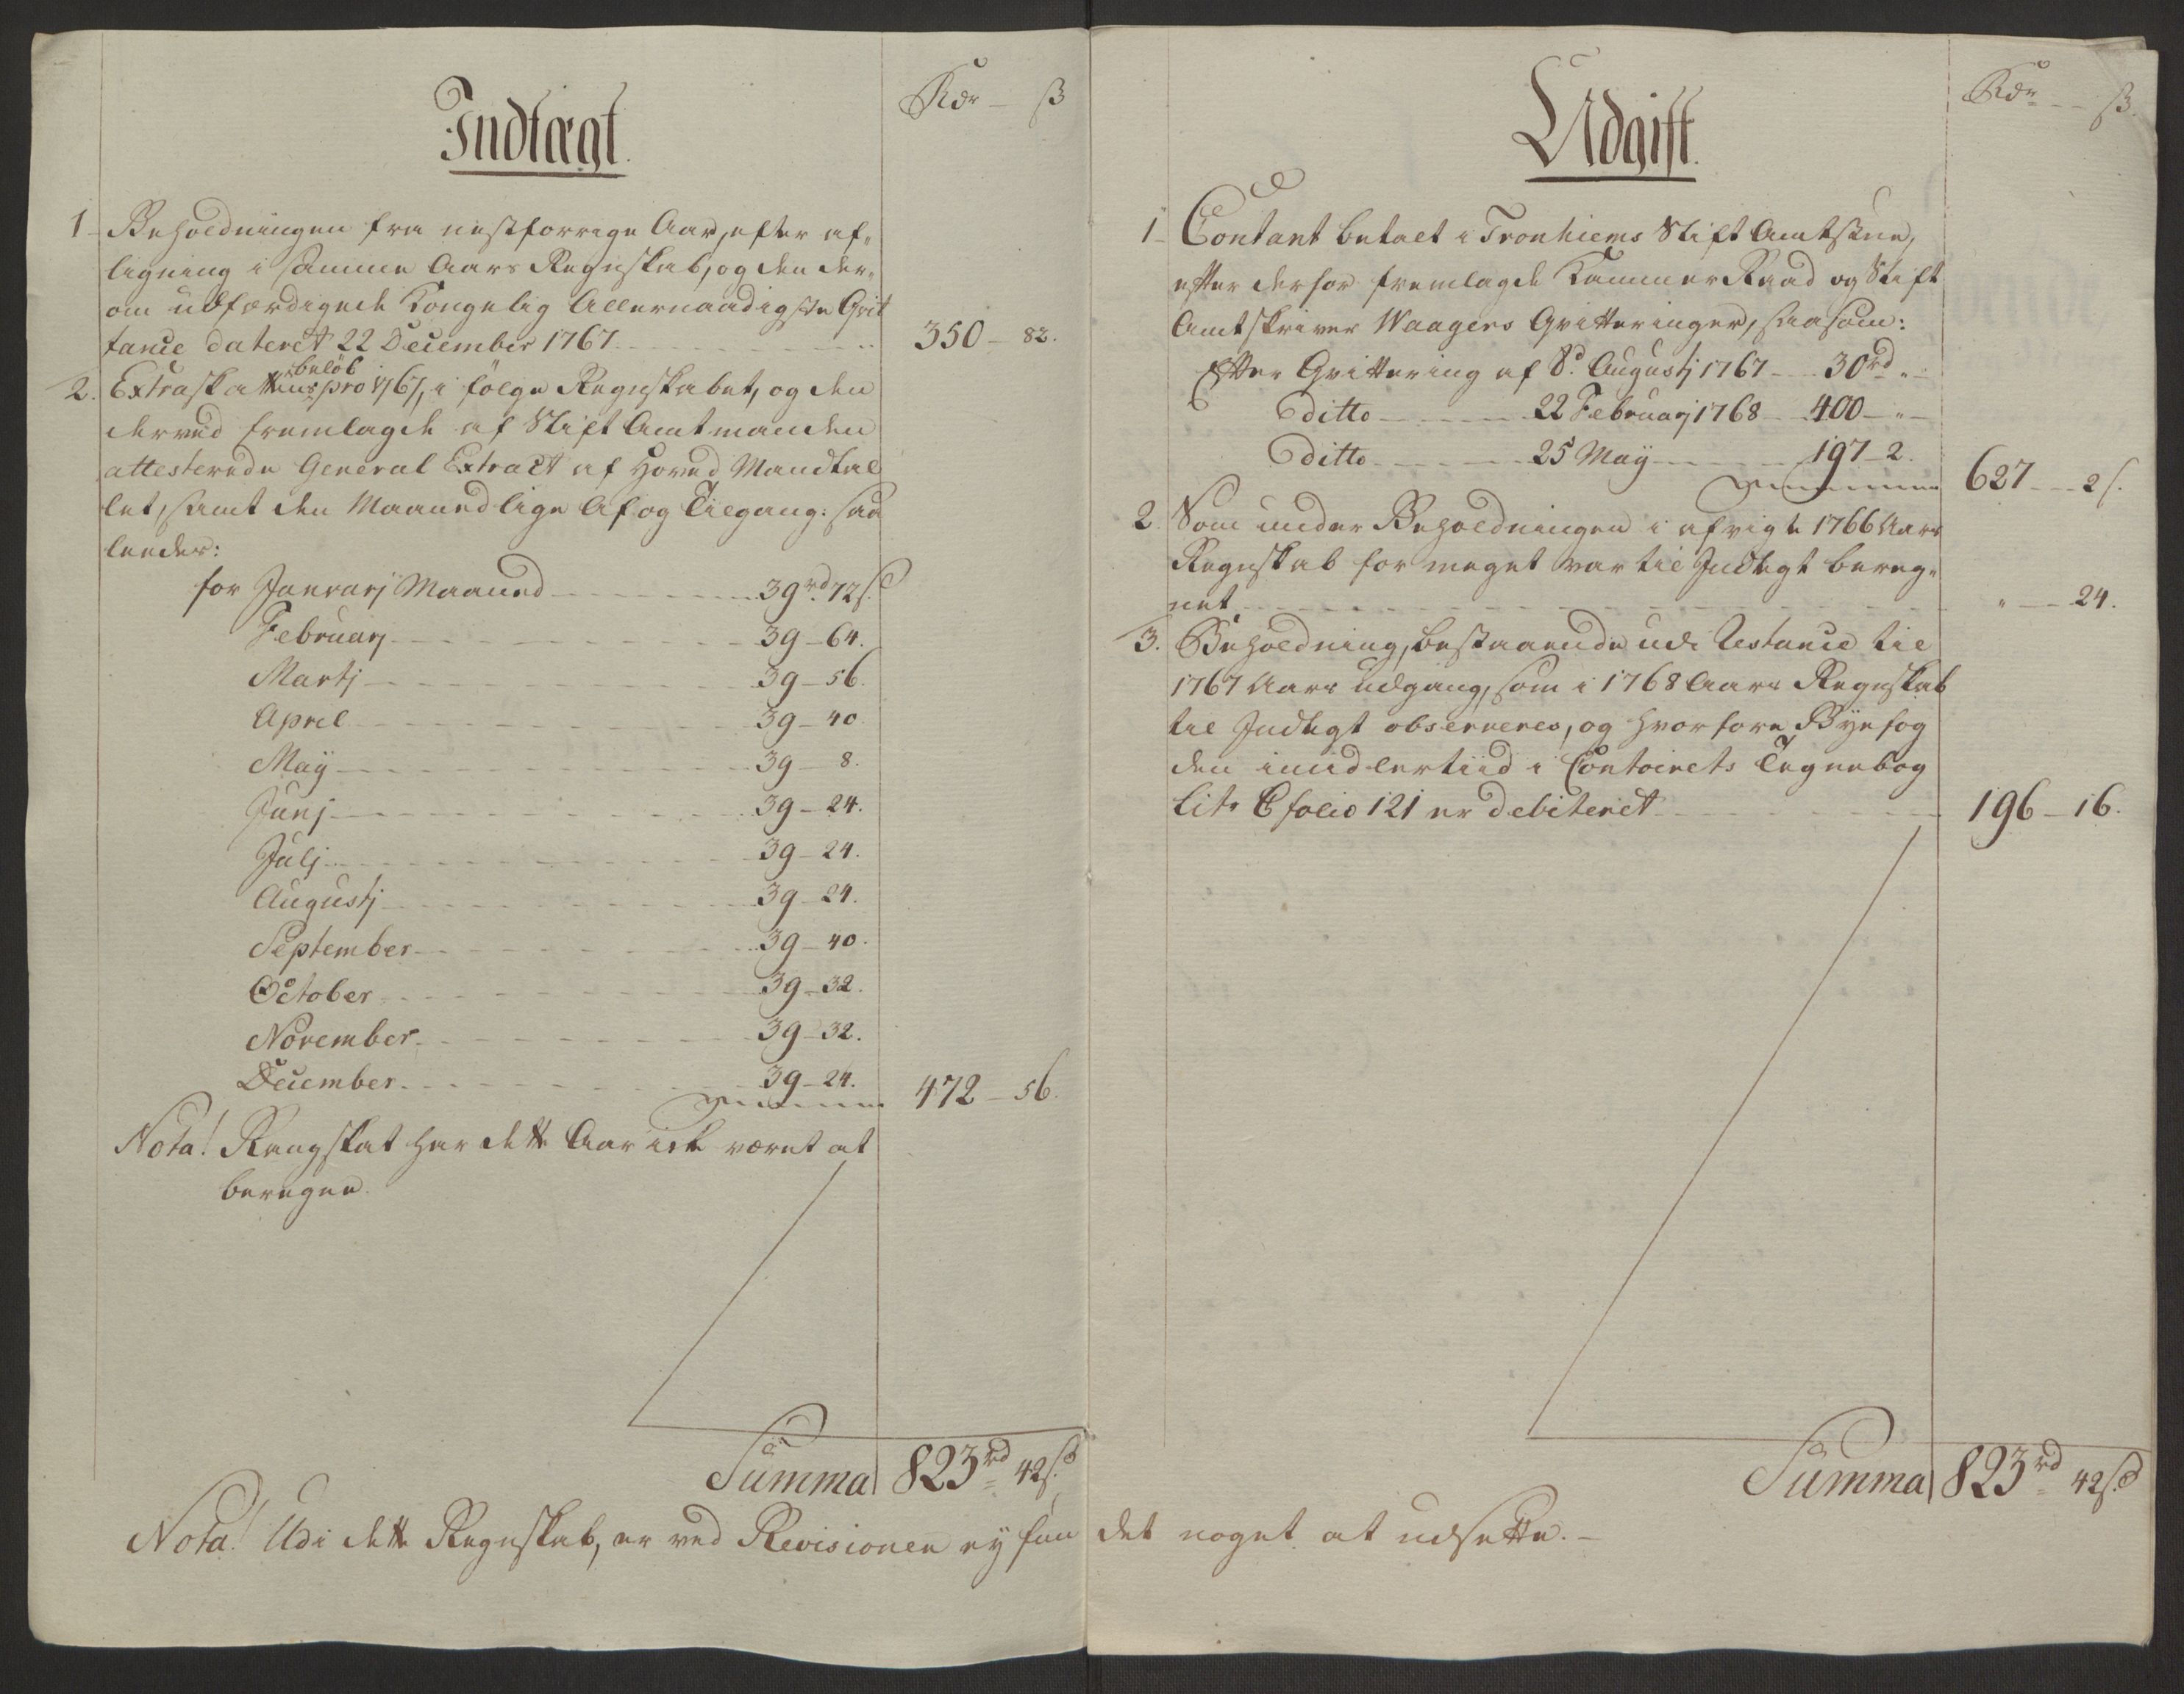 Indtægt.
Rdr — ß
1 Beholdningen fra nestforrige Aar, efter af-
ligning i samme Aars Regnskab, og den der-
om udfærdigede Kongelig Allernaadigste Qvit
tance dateret 22 December 1767 350 - 82.
2. Extraskattens beløb pro 1767, i følge Regnskabet, og den
derved fremlagde af Stift Amtmanden
attesterede General Extract af Hoved Mandtal
let, samt den Maanedlige Af og Tilgang: saa
leedes:
for Januarj Maaned 39rd 72s.
Februarj 39 - 64.
Martj 39 - 56.
April 39 - 40
Maÿ 39 - 8.
Junj 39 - 24.
Julj 39 - 24.
Augustj 39 - 24.
September 39 - 40.
October 39 - 32.
November 39 - 32.
December 39 - 24.
472 - 56.
Nota! Rangskat har dette Aar icke været at
beregne.
Summa 823rd 42s.
Nota! Udi dette Regnskab, er ved Revisionen eÿ fun
Udgift.
Rdr — ß.
1 Contant betalt i Tronhiems Stift Amtstue,
efter derfor fremlagde Kammer Raad og Stift
Amtskriver Waagers Qvitteringer, saasom:
Efter Qvittering af 8d. Augustj 1767 30rd "
Ditto 22 Februarj 1768 400 - "
Ditto 25 Maÿ 197 - 2.
627 - 2s.
2. Som under Beholdningen i afvigte 1766 Aars
Regnskab for meget var til Indtegt bereg-
net " - 24.
3. Beholdning, bestaaende udi Restance til
1767 Aars udgang, som i 1768 Aars Regnskab
til Indtegt observeres, og hvorfore Bÿefog
den imidlertiid i Contoirets Tegnebog
Litr C folio 121 er debiteret 196 - 16.
Summa 823rd 42s.
det noget at udsette.